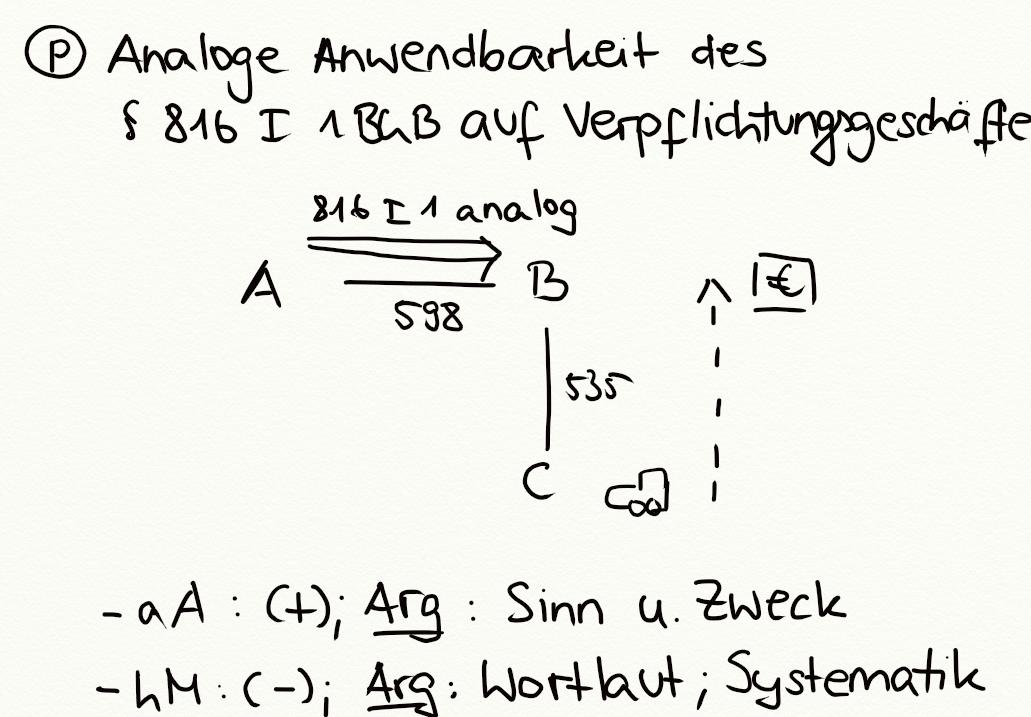 P Analoge Anwendbarkeit des
§ 816 I 1 BGB auf Verpflichtungsgeschäfte
816 I 1 analog
A
B
€
598
535
C
- aA : (+); Arg : Sinn u. Zweck
- hM : (-); Arg : Wortlaut ; Systematik